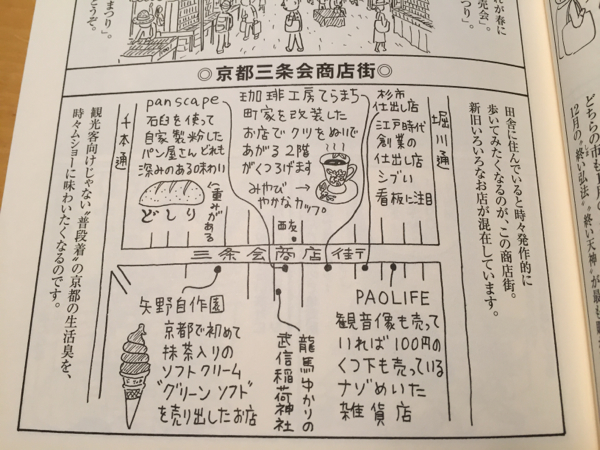 まつり」。
どうぞ。
れが春に
売会」。
つり」。
◎京都三条会商店街◎
田舎に住んでいると時々発作的に
歩いてみたくなるのが、この商店街。
新旧いろいろなお店が混在しています。
堀川通
杉市
仕出し店
江戸時代
創業の
仕出し店
シブい
看板に注目
珈琲工房てらまち
町家を改装した
お店でクツをぬいで
あがる2階
がくつろげます
みやび
やかなカップ。
panscape
石臼を使って
自家製粉した
パン屋さん どれも
深みのある味わい
重みがある
どしり
千本通
西友
三条会商店街
矢野自作園
京都で初めて
抹茶入りの
ソフトクリーム
"グリーンソフト"
を売り出したお店
龍馬ゆかりの
武信稲荷神社
PAOLIFE
観音像も売って
いれば100円の
くつ下も売っている
ナゾめいた
雑貨店
観光客向けじゃない“普段着”の京都の生活臭を、
時々ムショーに味わいたくなるのです。
どちらの市も
12月の“終い弘法”“終い天神”が最も